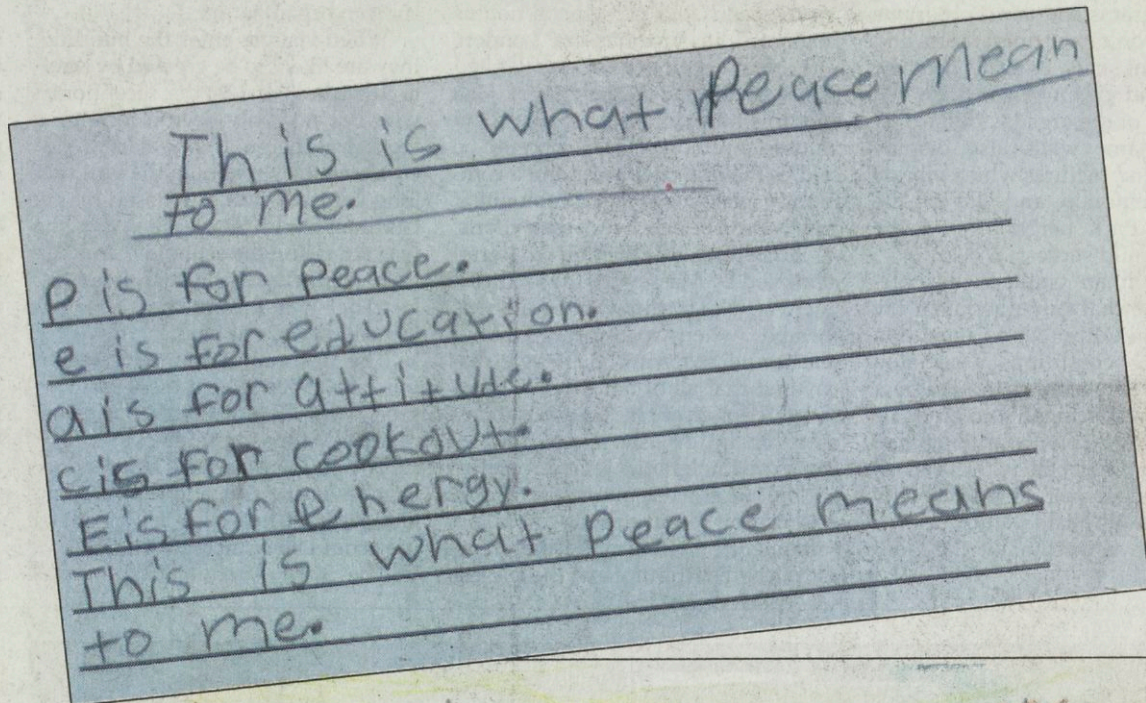 This is what Peace mean
to me.
P is for Peace.
e is for education.
a is for attitude.
c is for cookout.
E is for Energy.
This is what Peace means
to me.